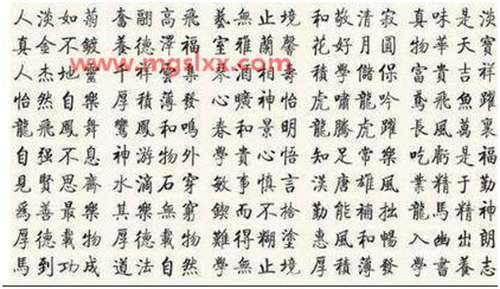 人淡如菊 奮翮高飛 藝無止境 和敬清寂 真味是淡
真金不鍍 養德澤福 室雅蘭馨 花好月圓 物華天寶
www.mgslxx.com
人杰地靈 千祥 琴酒相 好學 富貴吉祥
怡然自樂 厚積薄發 心曠神怡 虎嘯龍吟 鳶飛魚躍
龍飛鳳舞 鸞鳳和鳴 春和景明 龍騰虎躍 長風萬里
自强不息 神游物外 和貴心悟 知足常樂 吃虧是福
見賢思齋 水滴石穿 敏事慎言 漢唐雄風 業精于勤
為善最樂 其樂無窮 鍥而不捨 勤能補拙 龍馬精神
厚德載物 厚德載物 難得糊塗 惠風和暢 入幽出朗
馬到功成 道法自然 學無止境 厚積薄發 學書養志